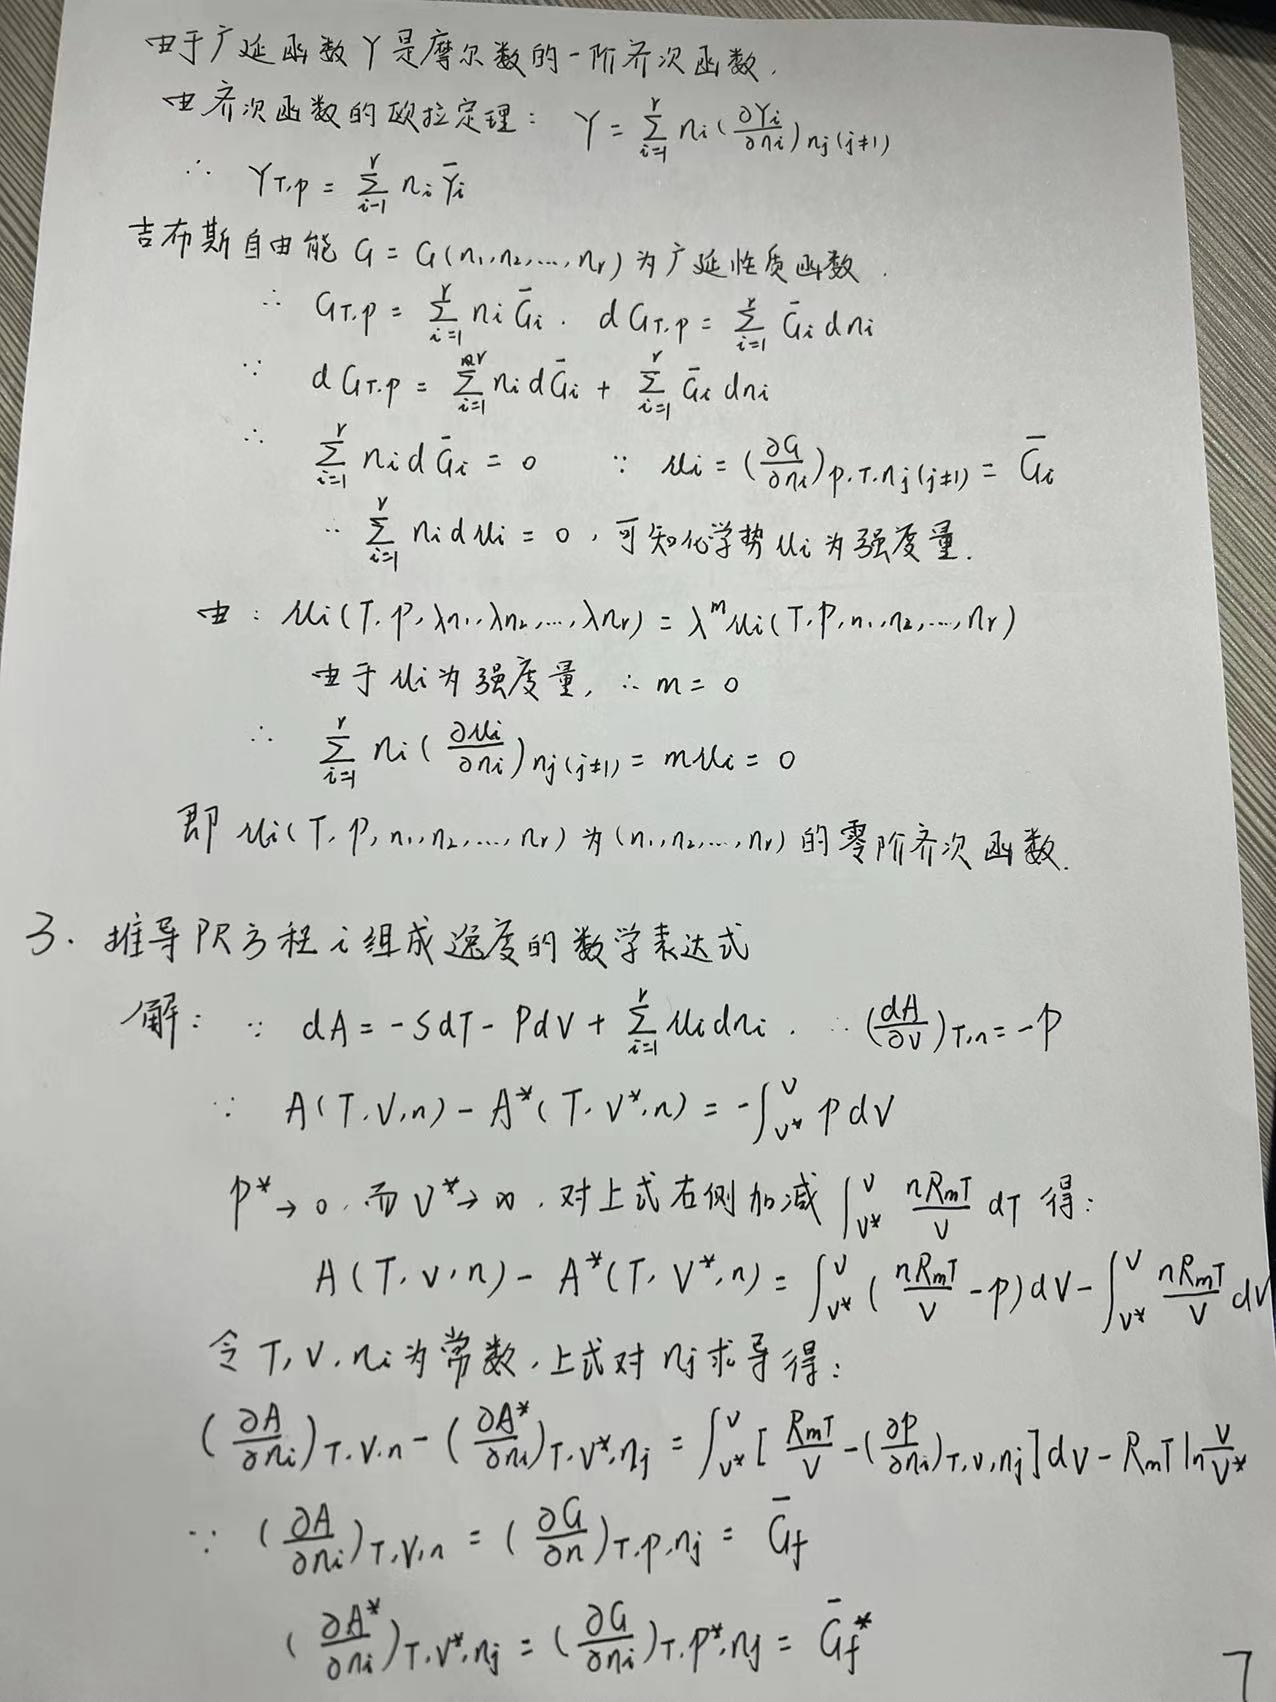 由于广延函数Y是摩尔数的一阶齐次函数.
由齐次函数的欧拉定理: Y = ∑_{i=1}^{r} n_i (∂Y_i/∂n_i)_{n_j(j≠1)}
∴ Y_{T,p} = ∑_{i=1}^{r} n_i Ȳ_i
吉布斯自由能 G = G(n₁,n₂,...,n_r) 为广延性质函数.
∴ G_{T,p} = ∑_{i=1}^{r} n_i Ḡ_i. dG_{T,p} = ∑_{i=1}^{r} Ḡ_i dn_i
∵ dG_{T,p} = ∑_{i=1}^{r} n_i dḠ_i + ∑_{i=1}^{r} Ḡ_i dn_i
∴ ∑_{i=1}^{r} n_i dḠ_i = 0 ∵ μ_i = (∂G/∂n_i)_{p,T,n_j(j≠1)} = Ḡ_i
∴ ∑_{i=1}^{r} n_i dμ_i = 0, 可知化学势μ_i为强度量.
由: μ_i(T,p,λn₁,λn₂,...,λn_r) = λ^m μ_i(T,p,n₁,n₂,...,n_r)
由于μ_i为强度量, ∴ m = 0
∴ ∑_{i=1}^{r} n_i (∂μ_i/∂n_i)_{n_j(j≠1)} = mμ_i = 0
即 μ_i(T,p,n₁,n₂,...,n_r) 为(n₁,n₂,...,n_r)的零阶齐次函数.
3. 推导PR方程i组成逸度的数学表达式
解: ∵ dA = -SdT - PdV + ∑_{i=1}^{r} μ_i dn_i. ∴ (dA/∂V)_{T,n} = -P
∵ A(T,V,n) - A*(T,V*,n) = -∫_{V*}^{V} p dV
p* → 0, 而V* → ∞, 对上式右侧加减 ∫_{V*}^{V} nR_mT/V dT 得:
A(T,V,n) - A*(T,V*,n) = ∫_{V*}^{V} (nR_mT/V - p) dV - ∫_{V*}^{V} nR_mT/V dV
令T,V,n_i为常数,上式对n_j求导得:
(∂A/∂n_i)_{T,V,n} - (∂A*/∂n_i)_{T,V*,n_j} = ∫_{V*}^{V} [R_mT/V - (∂p/∂n_i)_{T,V,n_j}] dV - R_mT ln V/V*
∵ (∂A/∂n_i)_{T,V,n} = (∂G/∂n)_{T,p,n_j} = Ḡ_f
(∂A*/∂n_i)_{T,V*,n_j} = (∂G/∂n_i)_{T,p*,n_j} = Ḡ_f*
7